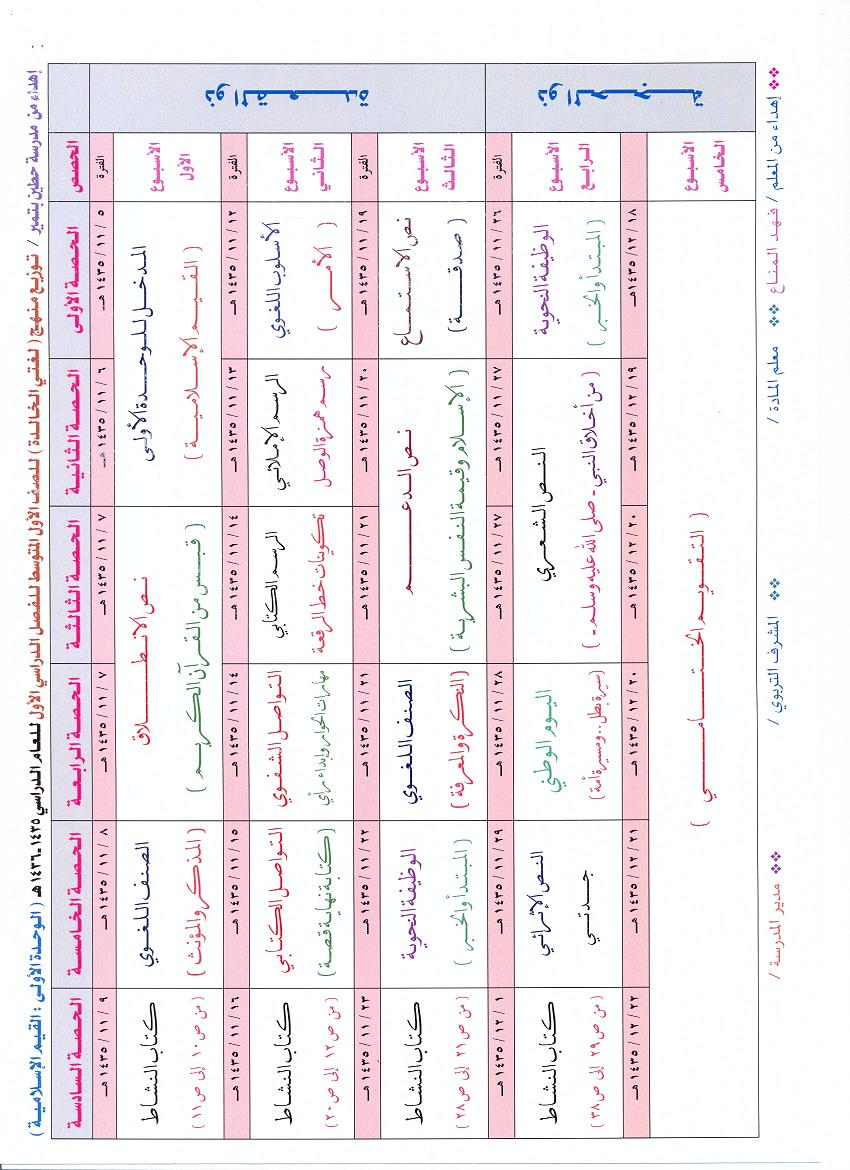 إهداء من مدرسة حطين بتمير / توزيع منهج ( لغتي الخالدة ) للصف الأول المتوسط للفصل الدراسي الأول للعام الدراسي ١٤٣٥ ـ ١٤٣٦ هـ ( الوحدة الأولى : القيم الإسلامية )
الحصص
الحصة الأولى
الحصة الثانية
الحصة الثالثة
الحصة الرابعة
الحصة الخامسة
الحصة السادسة
ذو القعدة
الفترة
٥ / ١١ / ١٤٣٥ هـ
٦ / ١١ / ١٤٣٥ هـ
٧ / ١١ / ١٤٣٥ هـ
٧ / ١١ / ١٤٣٥ هـ
٨ / ١١ / ١٤٣٥ هـ
٩ / ١١ / ١٤٣٥ هـ
الأسبوع
الأول
المدخل للوحدة الأولى
( القيم الإسلامية )
نص الانطلاق
( قبس من القرآن الكريم )
الصنف اللغوي
( المذكر والمؤنث )
كتاب النشاط
( من ص ١٠ إلى ص ١١ )
الفترة
١٢ / ١١ / ١٤٣٥ هـ
١٣ / ١١ / ١٤٣٥ هـ
١٤ / ١١ / ١٤٣٥ هـ
١٤ / ١١ / ١٤٣٥ هـ
١٥ / ١١ / ١٤٣٥ هـ
١٦ / ١١ / ١٤٣٥ هـ
الأسبوع
الثاني
الأسلوب اللغوي
( الأمر )
الرسم الإملائي
رسم همزة الوصل
الرسم الكتابي
تكوينات خط الرقعة
التواصل الشفوي
مهارات الحوار وإبداء رأي
التواصل الكتابي
( كتابة نهاية قصة )
كتاب النشاط
( من ص ١٢ إلى ص ٢٠ )
الفترة
١٩ / ١١ / ١٤٣٥ هـ
٢٠ / ١١ / ١٤٣٥ هـ
٢١ / ١١ / ١٤٣٥ هـ
٢١ / ١١ / ١٤٣٥ هـ
٢٢ / ١١ / ١٤٣٥ هـ
٢٣ / ١١ / ١٤٣٥ هـ
الأسبوع
الثالث
نص الاستماع
( صدقة )
نص الدعم
( الإسلام وقيمة النفس البشرية )
الصنف اللغوي
( النكرة والمعرفة )
الوظيفة النحوية
( المبتدأ والخبر )
كتاب النشاط
( من ص ٢١ إلى ص ٢٨ )
ذو الحجة
الفترة
٢٦ / ١١ / ١٤٣٥ هـ
٢٧ / ١١ / ١٤٣٥ هـ
٢٧ / ١١ / ١٤٣٥ هـ
٢٨ / ١١ / ١٤٣٥ هـ
٢٩ / ١١ / ١٤٣٥ هـ
١ / ١٢ / ١٤٣٥ هـ
الأسبوع
الرابع
الوظيفة النحوية
( المبتدأ والخبر )
النص الشعري
( من أخلاق النبي - صلى الله عليه وسلم - )
اليوم الوطني
( سيرة بطل .. ومسيرة أمة )
النص الإثرائي
جدتي
كتاب النشاط
( من ص ٢٩ إلى ص ٣٨ )
١٨ / ١٢ / ١٤٣٥ هـ
١٩ / ١٢ / ١٤٣٥ هـ
٢٠ / ١٢ / ١٤٣٥ هـ
٢٠ / ١٢ / ١٤٣٥ هـ
٢١ / ١٢ / ١٤٣٥ هـ
٢٢ / ١٢ / ١٤٣٥ هـ
الأسبوع
الخامس
( التقويم الختامي )
إهداء من المعلم / فهد المناع
معلم المادة /
المشرف التربوي /
مدير المدرسة /